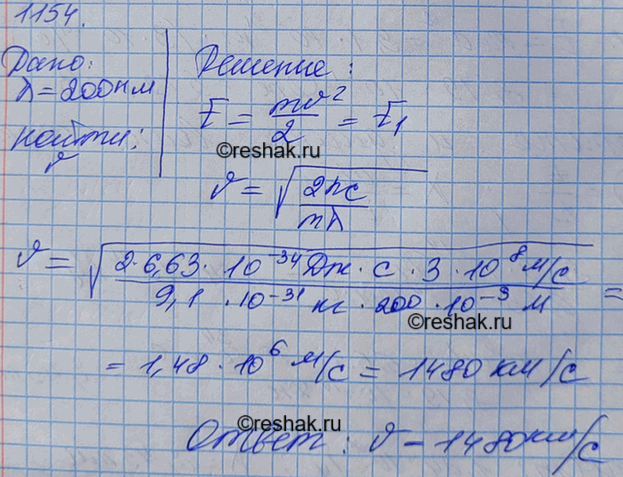 1154.
Дано:
λ = 200 нм
Найти:
υ
Решение:
E = mυ²/2 = E₁
©reshak.ru
υ = √(2hc/mλ)
υ = √(2·6,63·10⁻³⁴ Дж·с·3·10⁸ м/с / 9,1·10⁻³¹ кг·200·10⁻⁹ м) =
©reshak.ru
= 1,48·10⁶ м/с = 1480 км/с
©reshak.ru
Ответ: υ – 1480 км/с